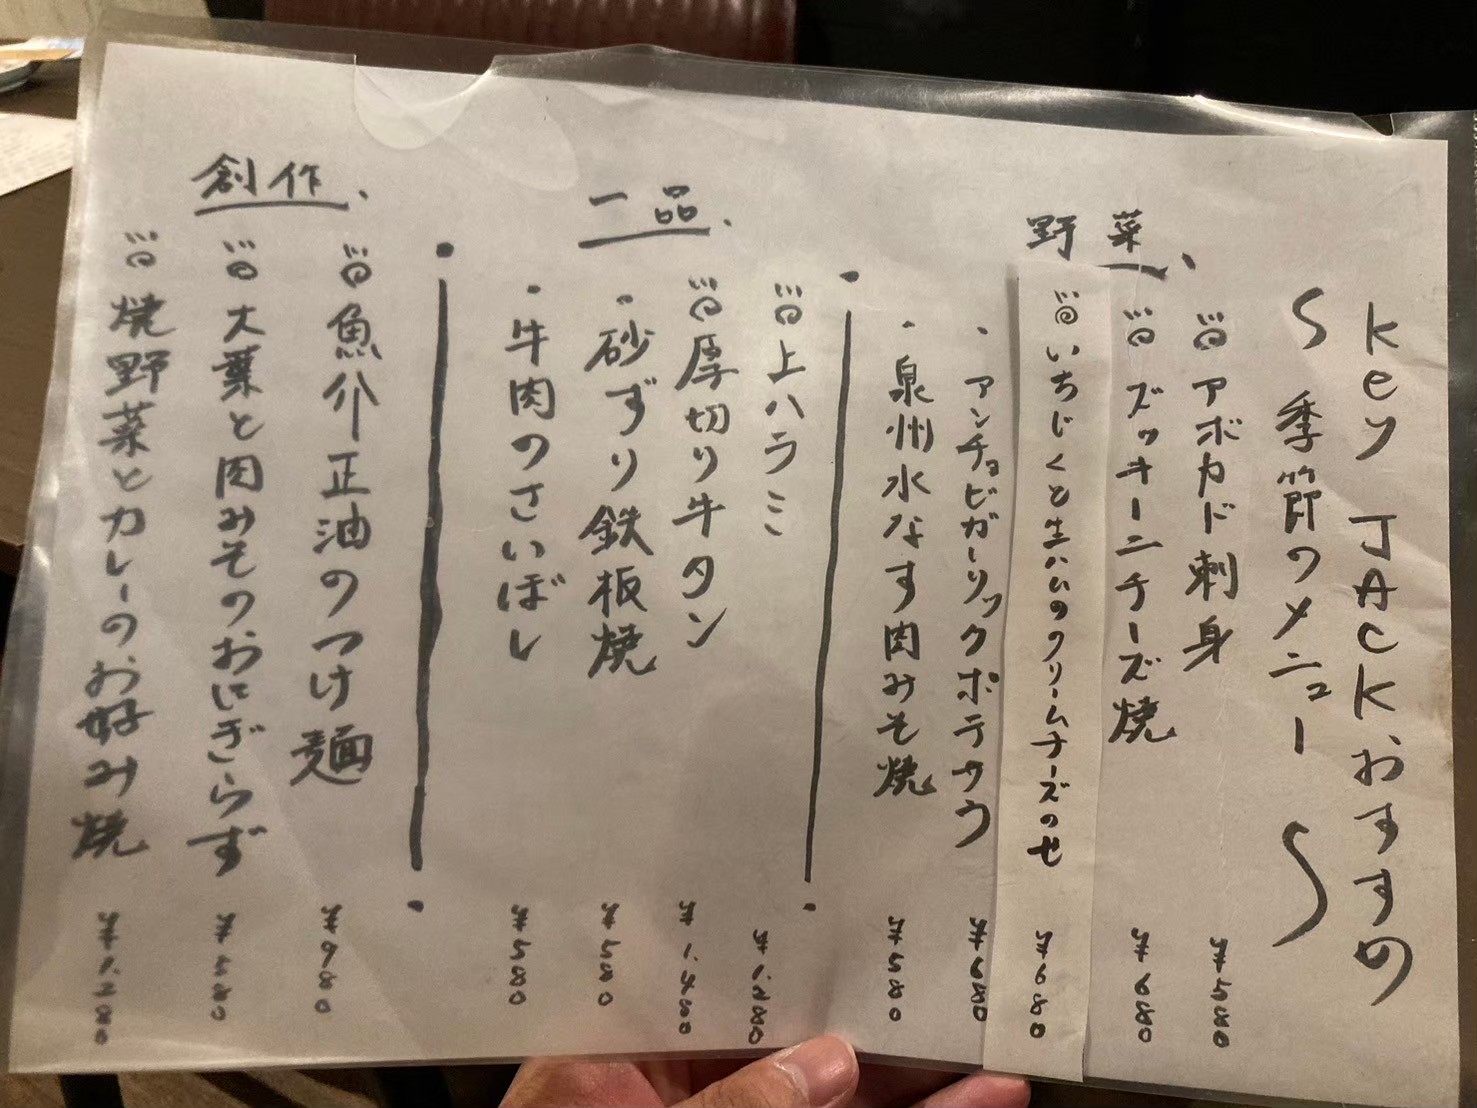 Key JACKおすすめ
〜 季節のメニュー 〜
野菜、
アボカド刺身 ¥580
ズッキーニチーズ焼 ¥680
いちじくと生ハムのクリームチーズのせ ¥680
・アンチョビガーリックポテサラ ¥680
・泉州水なす肉みそ焼 ¥580
一品、
上ハラミ ¥1,280
厚切り牛タン ¥1,480
・砂ずり鉄板焼 ¥580
・牛肉のさいぼし ¥580
創作、
魚介正油のつけ麺 ¥980
大葉と肉みそのおにぎらず ¥580
焼野菜とカレーのお好み焼 ¥1,280